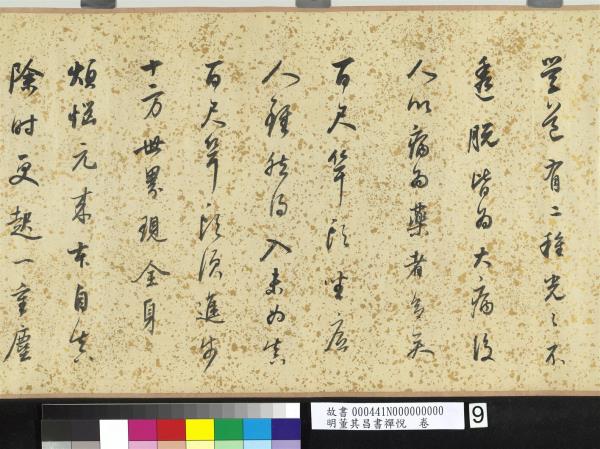 學道有二種光之不
透脫皆為大病後
人以病為藥者多矣
百尺竿頭坐底
人雖然得入未為真
百尺竿頭須進步
十方世界現全身
煩惱元來本自真
除時更起一重塵
故書 000441N000000000
明董其昌書禪悅 卷
9